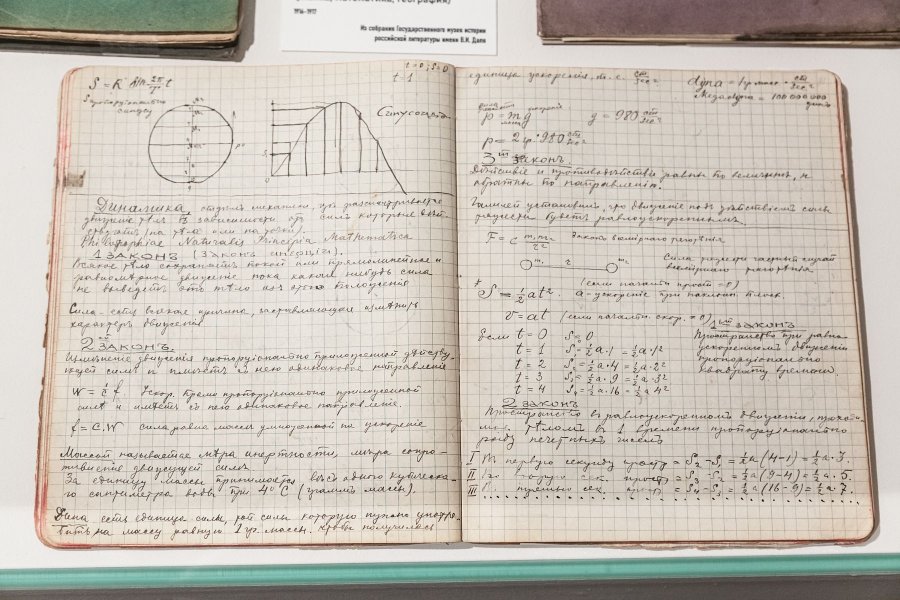 1916-1917
Из собрания Государственного музея истории
российской литературы имени В.И. Даля
S = R sin 2π/T t
t = 0, S = 0
t - 1
Синусоида
Динамика отделъ механики, гдѣ разсматривается
движение тѣлъ въ зависимости отъ силъ которыя дѣй-
ствуютъ (на тѣло или на точки).
Philosophiae Naturalis Principia Mathematica
1 ЗАКОНЪ (законъ инерціи).
Всякое тѣло сохраняетъ покой или прямолинейное и
равномѣрное движение пока какая нибудь сила
не выведетъ это тѣло изъ этого положения
Сила есть всякая причина, заставляющая измѣнить
характеръ движения
2ой ЗАКОНЪ.
Измѣнение движения пропорционально приложенной дѣйству-
ющей силѣ и имѣетъ съ нею одинаковое направление
W = 1/c f. Ускор. прямо пропорционально приложенной
силѣ и имѣетъ съ нею одинаковое направление.
f = c.W сила равна массѣ умноженной на ускорение
Массой называется мѣра инертности, мѣра сопро-
тивления движущей силѣ
За единицу массы принимается вѣсъ одного кубическа-
го сантиметра воды при 4° C (граммъ массы).
Дина есть единица силы, той силы которую нужно употре-
бить на массу равную 1 гр. массы. чтобы получилась
единица ускорения, т. е. cm/sec²
дина = 1 гр. массы · cm/sec²
Мегадина = 100 000 000
динъ
p = mg g = 980 cm/sec²
p = 2 гр · 980 cm/sec²
3iй законъ
Дѣйствие и противодѣйствие равны по величинѣ, и
обратны по направлению.
Галилей установилъ, что движение подъ дѣйствиемъ силы
тяжести будетъ равноускореннымъ.
F = c m₁m₂/r² Законъ всемирнаго тяготѣния
m₁ r m₂
Сила тяжести частный случай
всемирнаго тяготѣния
S = ½ at². (если начальн. прост = 0)
a - ускорение при наклонн. плоск
v = at (если начальн. скор. = 0)
если t = 0 S = 0
t = 1 S₁ = ½ a·1 = ½ a·1²
t = 2 S₂ = ½ a·4 = ½ a·2²
t = 3 S₃ = ½ a·9 = ½ a·3²
t = 4 S₄ = ½ a·16 = ½ a·4²
1ый законъ
Пространство при равно-
ускоренномъ движении
пропорционально
квадрату времени.
2 законъ
Пространство въ равноускоренномъ движении, проходи-
мое тѣломъ въ 1 времени пропорционально
ряду нечетныхъ чиселъ
I въ первую секунду простр = S₂ - S₁ = ½ a(4-1) = ½ a·3.
II во вторую сек. простр = S₃ - S₂ = ½ a(9-4) = ½ a·5.
III въ третью сек. простр = S₄ - S₃ = ½ a(16-9) = ½ a·7.